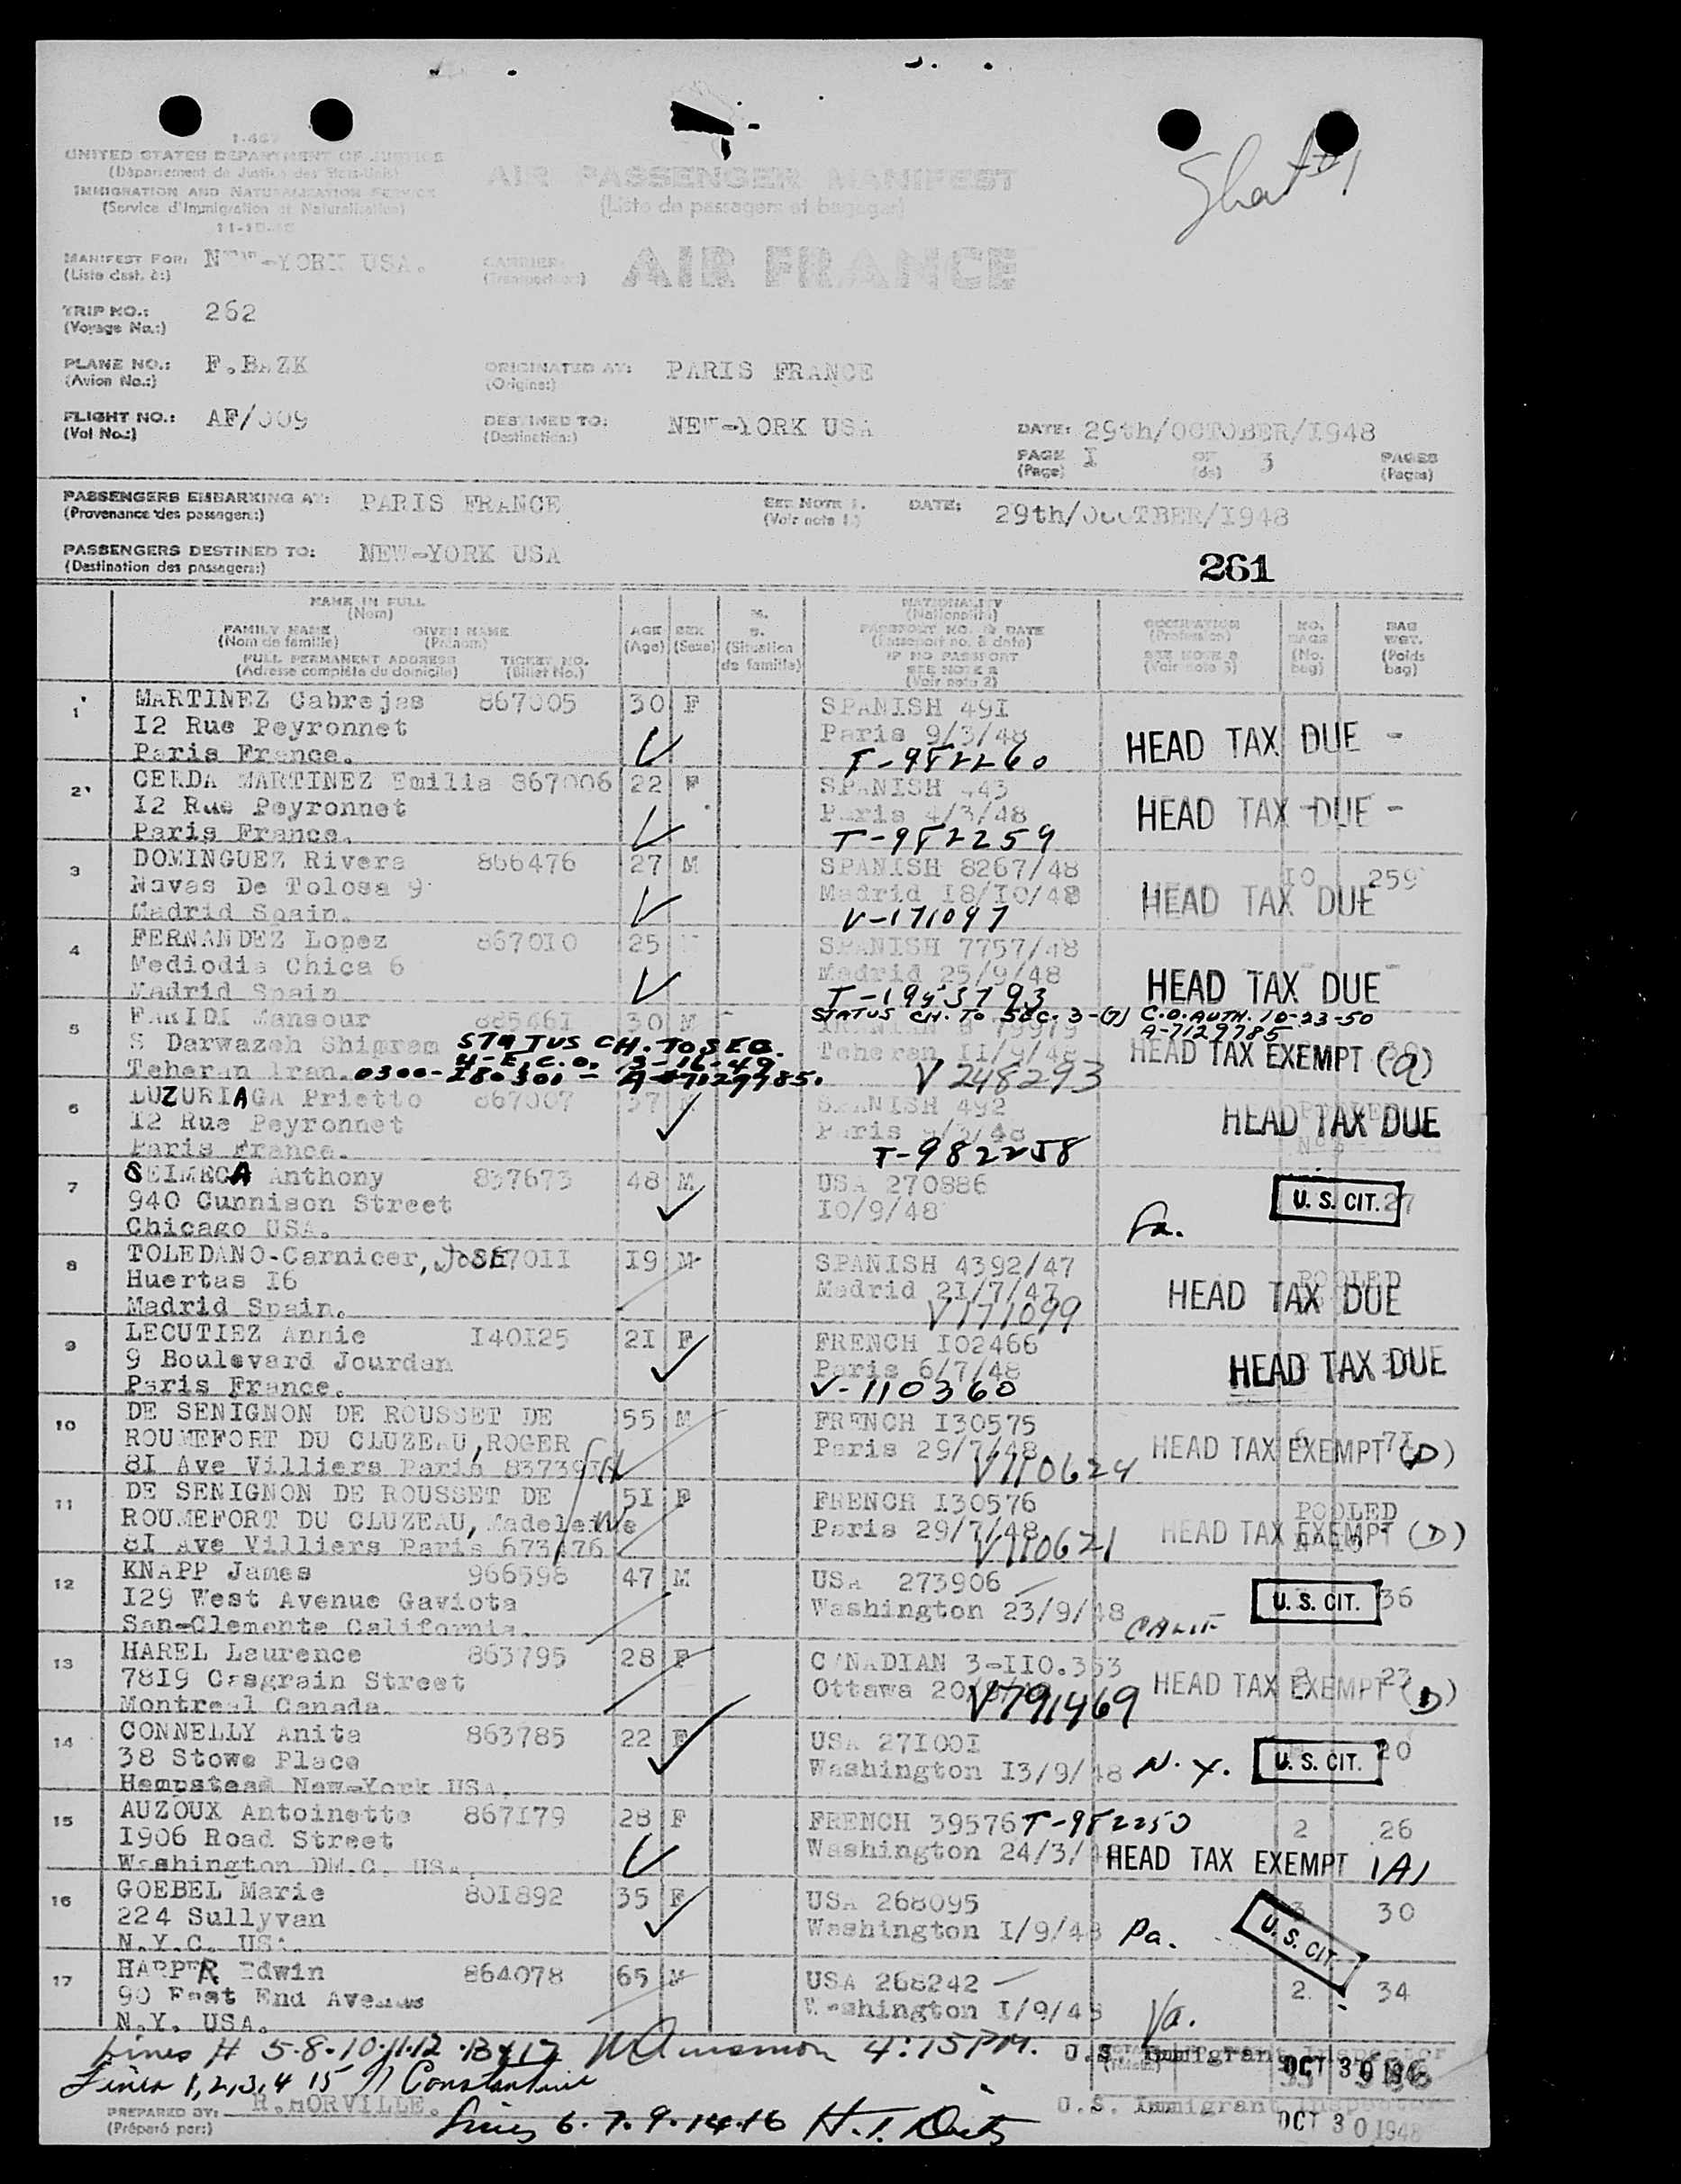 Sheet #1
UNITED STATES DEPARTMENT OF JUSTICE
(Département de Justice des Etats-Unis)
IMMIGRATION AND NATURALIZATION SERVICE
(Service d'Immigration et Naturalisation)
AIR PASSENGER MANIFEST
(Liste de passagers et bagages)
MANIFEST FOR: NEW-YORK USA.
(Liste dest. à:)
CARRIER: AIR FRANCE
(Transporteur)
TRIP NO.: 262
(Voyage No.:)
PLANE NO.: F.BAZK
(Avion No.:)
ORIGINATED AT: PARIS FRANCE
(Origine:)
FLIGHT NO.: AF/009
(Vol No.:)
DESTINED TO: NEW-YORK USA
(Destination:)
DATE: 29th/OCTOBER/I948
PAGE I OF 3 PAGES
(Page) (de) (Pages)
PASSENGERS EMBARKING AT: PARIS FRANCE
(Provenance des passagers:)
SEE NOTE 1. DATE: 29th/OCOTBER/I948
(Voir note 1.)
PASSENGERS DESTINED TO: NEW-YORK USA
(Destination des passagers:)
261
NAME IN FULL
(Nom)
FAMILY NAME GIVEN NAME
(Nom de famille) (Prénom)
FULL PERMANENT ADDRESS TICKET NO.
(Adresse complète du domicile) (Billet No.)
AGE
(Age)
SEX
(Sexe)
M.
S.
(Situation
de famille)
NATIONALITY
(Nationalité)
PASSPORT NO. & DATE
(Passeport no. & date)
IF NO PASSPORT
SEE NOTE 2
(Voir note 2)
OCCUPATION
(Profession)
SEE NOTE 3
(Voir note 3)
NO.
BAGS
(No.
bag)
BAG
WGT.
(Poids
bag)
1 MARTINEZ Cabrejas 867005 30 F SPANISH 49I
I2 Rue Peyronnet Paris 9/3/48
Paris France. T-982260 HEAD TAX DUE -
2 CERDA MARTINEZ Emilia 867006 22 F SPANISH 443
I2 Rue Peyronnet Paris 4/3/48
Paris France. T-982259 HEAD TAX DUE -
3 DOMINGUEZ Rivera 866476 27 M SPANISH 8267/48 IO 259
Navas De Tolosa 9 Madrid I8/IO/48
Madrid Spain. V-171097 HEAD TAX DUE
4 FERNANDEZ Lopez 8670IO 25 SPANISH 7757/48
Mediodia Chica 6 Madrid 25/9/48
Madrid Spain T-1953793 HEAD TAX DUE
STATUS CH. TO SEC. 3-(7) C.O. AUTH. 10-23-50
A-7129785
5 FARIDI Mansour 88546I 30 M
S Darwazeh Shimram Teheran II/9/48
Teheran Iran. V 248293 HEAD TAX EXEMPT (a)
STATUS CH. TO SEC.
4-E, C.O. 3-16-49
0300-180301 - A-7129785.
6 LUZURIAGA Prietto 867007 37 SPANISH 492
I2 Rue Peyronnet Paris 9/3/48
Paris France. T-982258 HEAD TAX DUE
7 SEIMECA Anthony 837673 48 M USA 270886
940 Gunnison Street IO/9/48 U. S. CIT. 27
Chicago USA.
8 TOLEDANO-Carnicer, JOSE 8670II I9 M SPANISH 4392/47
Huertas I6 Madrid 2I/7/47 POOLED
Madrid Spain. V171099 HEAD TAX DUE
9 LECUTIEZ Annie I40I25 2I F FRENCH IO2466
9 Boulevard Jourdan Paris 6/7/48
Paris France. V-110360 HEAD TAX DUE
10 DE SENIGNON DE ROUSSET DE 55 M FRENCH I30575
ROUMEFORT DU CLUZEAU, ROGER Paris 29/7/48 6 7I
8I Ave Villiers Paris V110624 HEAD TAX EXEMPT (D)
11 DE SENIGNON DE ROUSSET DE 5I F FRENCH I30576
ROUMEFORT DU CLUZEAU, Madeleine Paris 29/7/48 POOLED
8I Ave Villiers Paris 673I76 V110621 HEAD TAX EXEMPT (D)
12 KNAPP James 966598 47 M USA 273906
I29 West Avenue Gaviota Washington 23/9/48 U. S. CIT. 36
San-Clemente California. CALIF
13 HAREL Laurence 863795 28 F CANADIAN 3-IIO.353
78I9 Casgrain Street Ottawa 20 2 23
Montreal Canada. V791469 HEAD TAX EXEMPT (D)
14 CONNELLY Anita 863785 22 F USA 27I00I
38 Stowe Place Washington I3/9/48 N.Y. U. S. CIT. 20
Hempstead New-York USA.
15 AUZOUX Antoinette 867I79 28 F FRENCH 39576 T-982250 2 26
I906 Road Street Washington 24/3/
Washington DW.C. USA. HEAD TAX EXEMPT (A)
16 GOEBEL Marie 80I892 35 F USA 268095 3 30
224 Sullyvan Washington I/9/48 Pa. U. S. CIT.
N.Y.C. USA.
17 HARPER Edwin 864078 65 M USA 268242 2 34
90 East End Avenue Washington I/9/48
N.Y. USA. Va.
Lines # 5-8-10-11-12-13 & 17 4:15 PM. U.S. Immigrant Inspector OCT 30 1948
Lines 1, 2, 3, 4 15 Constantine
PREPARED BY: R.HORVILLE.
(Préparé par:)
Lines 6-7-9-14-16 U.S. Immigrant Inspector
OCT 30 1948